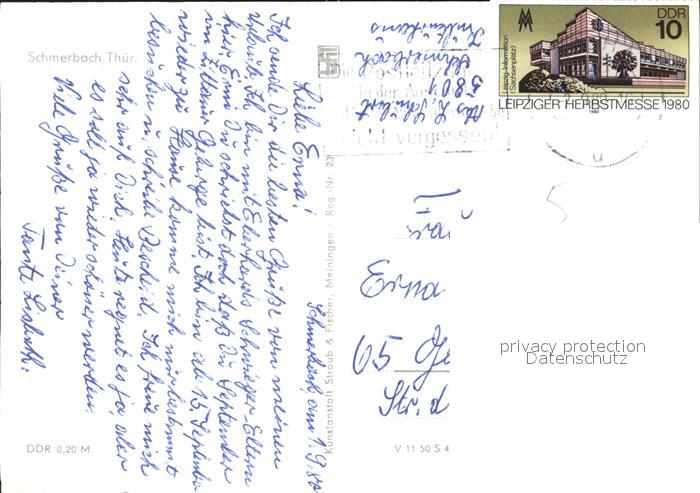 Schmerbach Thür.
Schmerbach, am 1.9.80
Liebe Erna!
Ich sende Dir die besten Grüße von meinem
Urlaub. Ich bin mit Eberhards Schwieger-Eltern
hier. Erna Du schriebst doch daß Du September
im Zittauer Gebirge bist. Ich bin ab 15. September
wieder zu Hause komme mich mal bestimmt
besuchen u. schreibe Bescheid. Ich freue mich
sehr auf Dich. Heute regnet es ja, aber
es soll ja wieder schöner werden.
Viele Grüße von Deiner
Tante
DDR 0,20 M
Kunstanstalt Straub & Fischer, Meiningen · Reg.-Nr. 23
V 11 50 S 4
Abs. L. Schubert
5801
Schmerbach
nicht vergessen
DDR
10
Leipzig-Information
(Sachsenplatz)
LEIPZIGER HERBSTMESSE 1980
1980
5
Frau
Erna
65 Ge
Str. d
privacy protection
Datenschutz